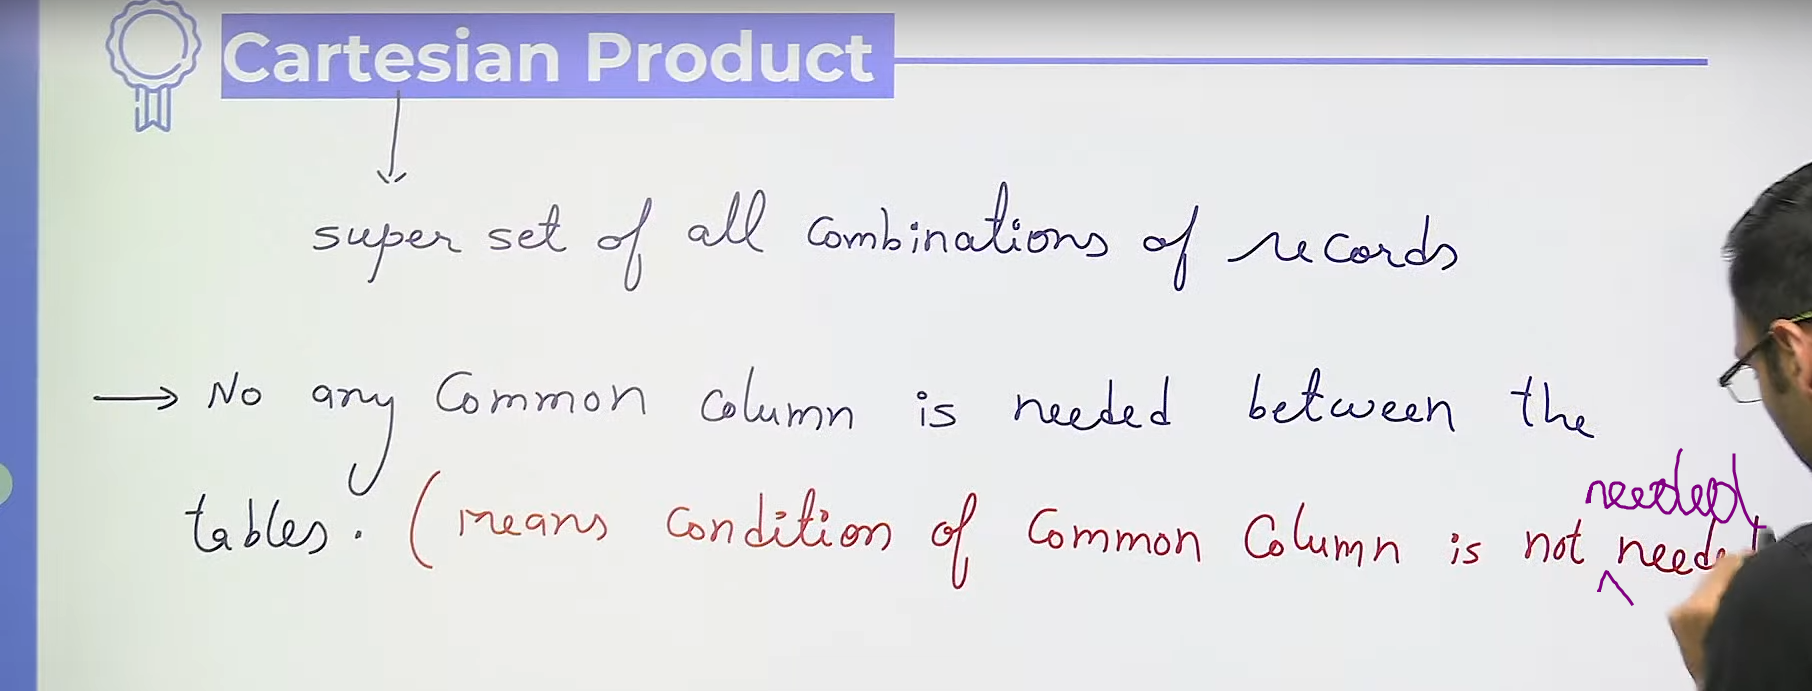 Cartesian Product
super set of all combinations of records
→ No any Common column is needed between the
needed
tables. (means condition of Common Column is not needed